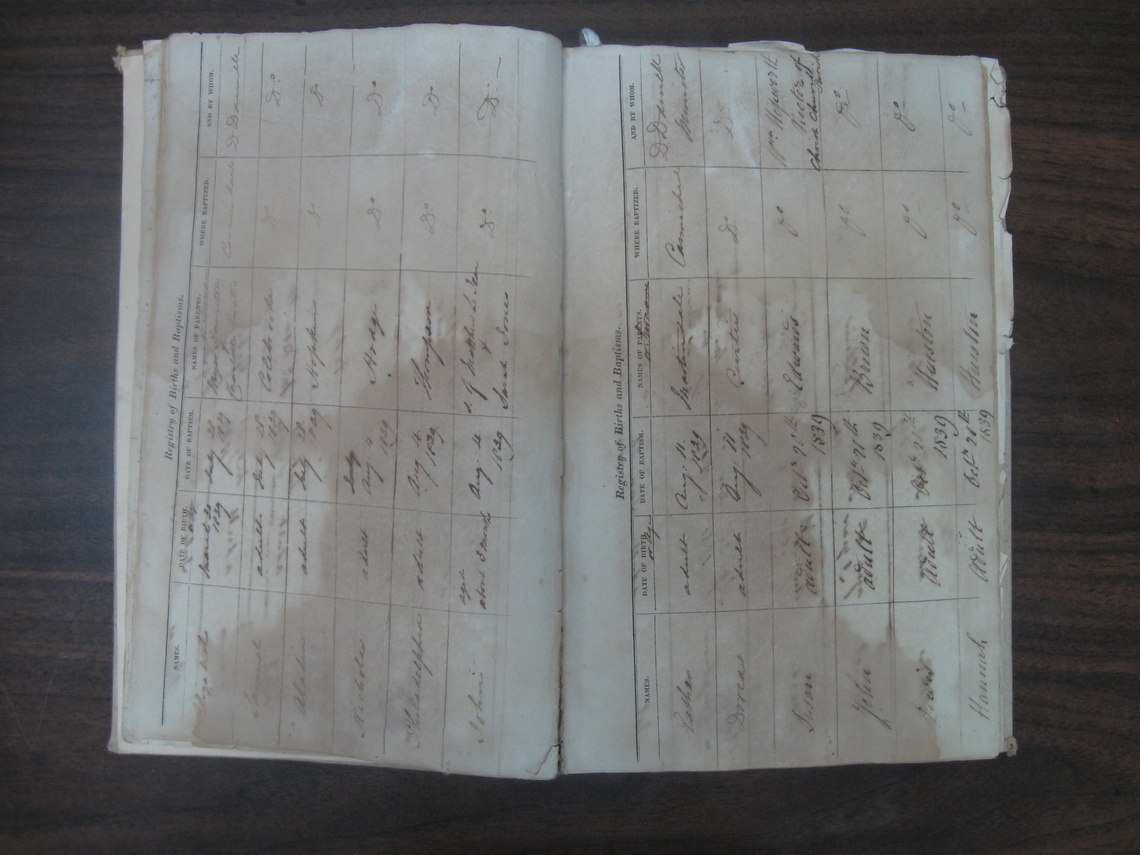 Registry of Births and Baptisms.
NAMES. DATE OF BIRTH. DATE OF BAPTISM. NAMES OF PARENTS. WHERE BAPTIZED. AND BY WHOM.
or Age
Elizabeth March 20 1839 July 28 1839 Major Charlotte Carmichael D Darnell
adult July 28 1839 Colebrooke Do Do
Aladin adult July 28 1839 Hopkins Do Do
Nicholas adult Aug. 4 1839 Hodge Do Do
Philadelphia adult Aug 4 1839 Thompson Do Do
John aged about 3 months Aug. 4 1839 s. of Matthew & Sarah Jones Do Do
Registry of Births and Baptisms.
NAMES. DATE OF BIRTH. DATE OF BAPTISM. NAMES OF PARENTS. WHERE BAPTIZED. AND BY WHOM.
or Age or Surname
Esther adult Aug. 11 1839 Martindale Carmichael D Darnell Minister
Dorcas adult Aug 11 1839 Curtis Do Do
Susan adult Octr 20th 1839 Edwards Do Wm Hepworth Rector of Christ Church Parish
John adult Octr 20th 1839 Brown Do Do
Lewis Adult Octr 20th 1839 Hueston Do Do
Hannah Adult Octr 20th 1839 Hueston Do Do